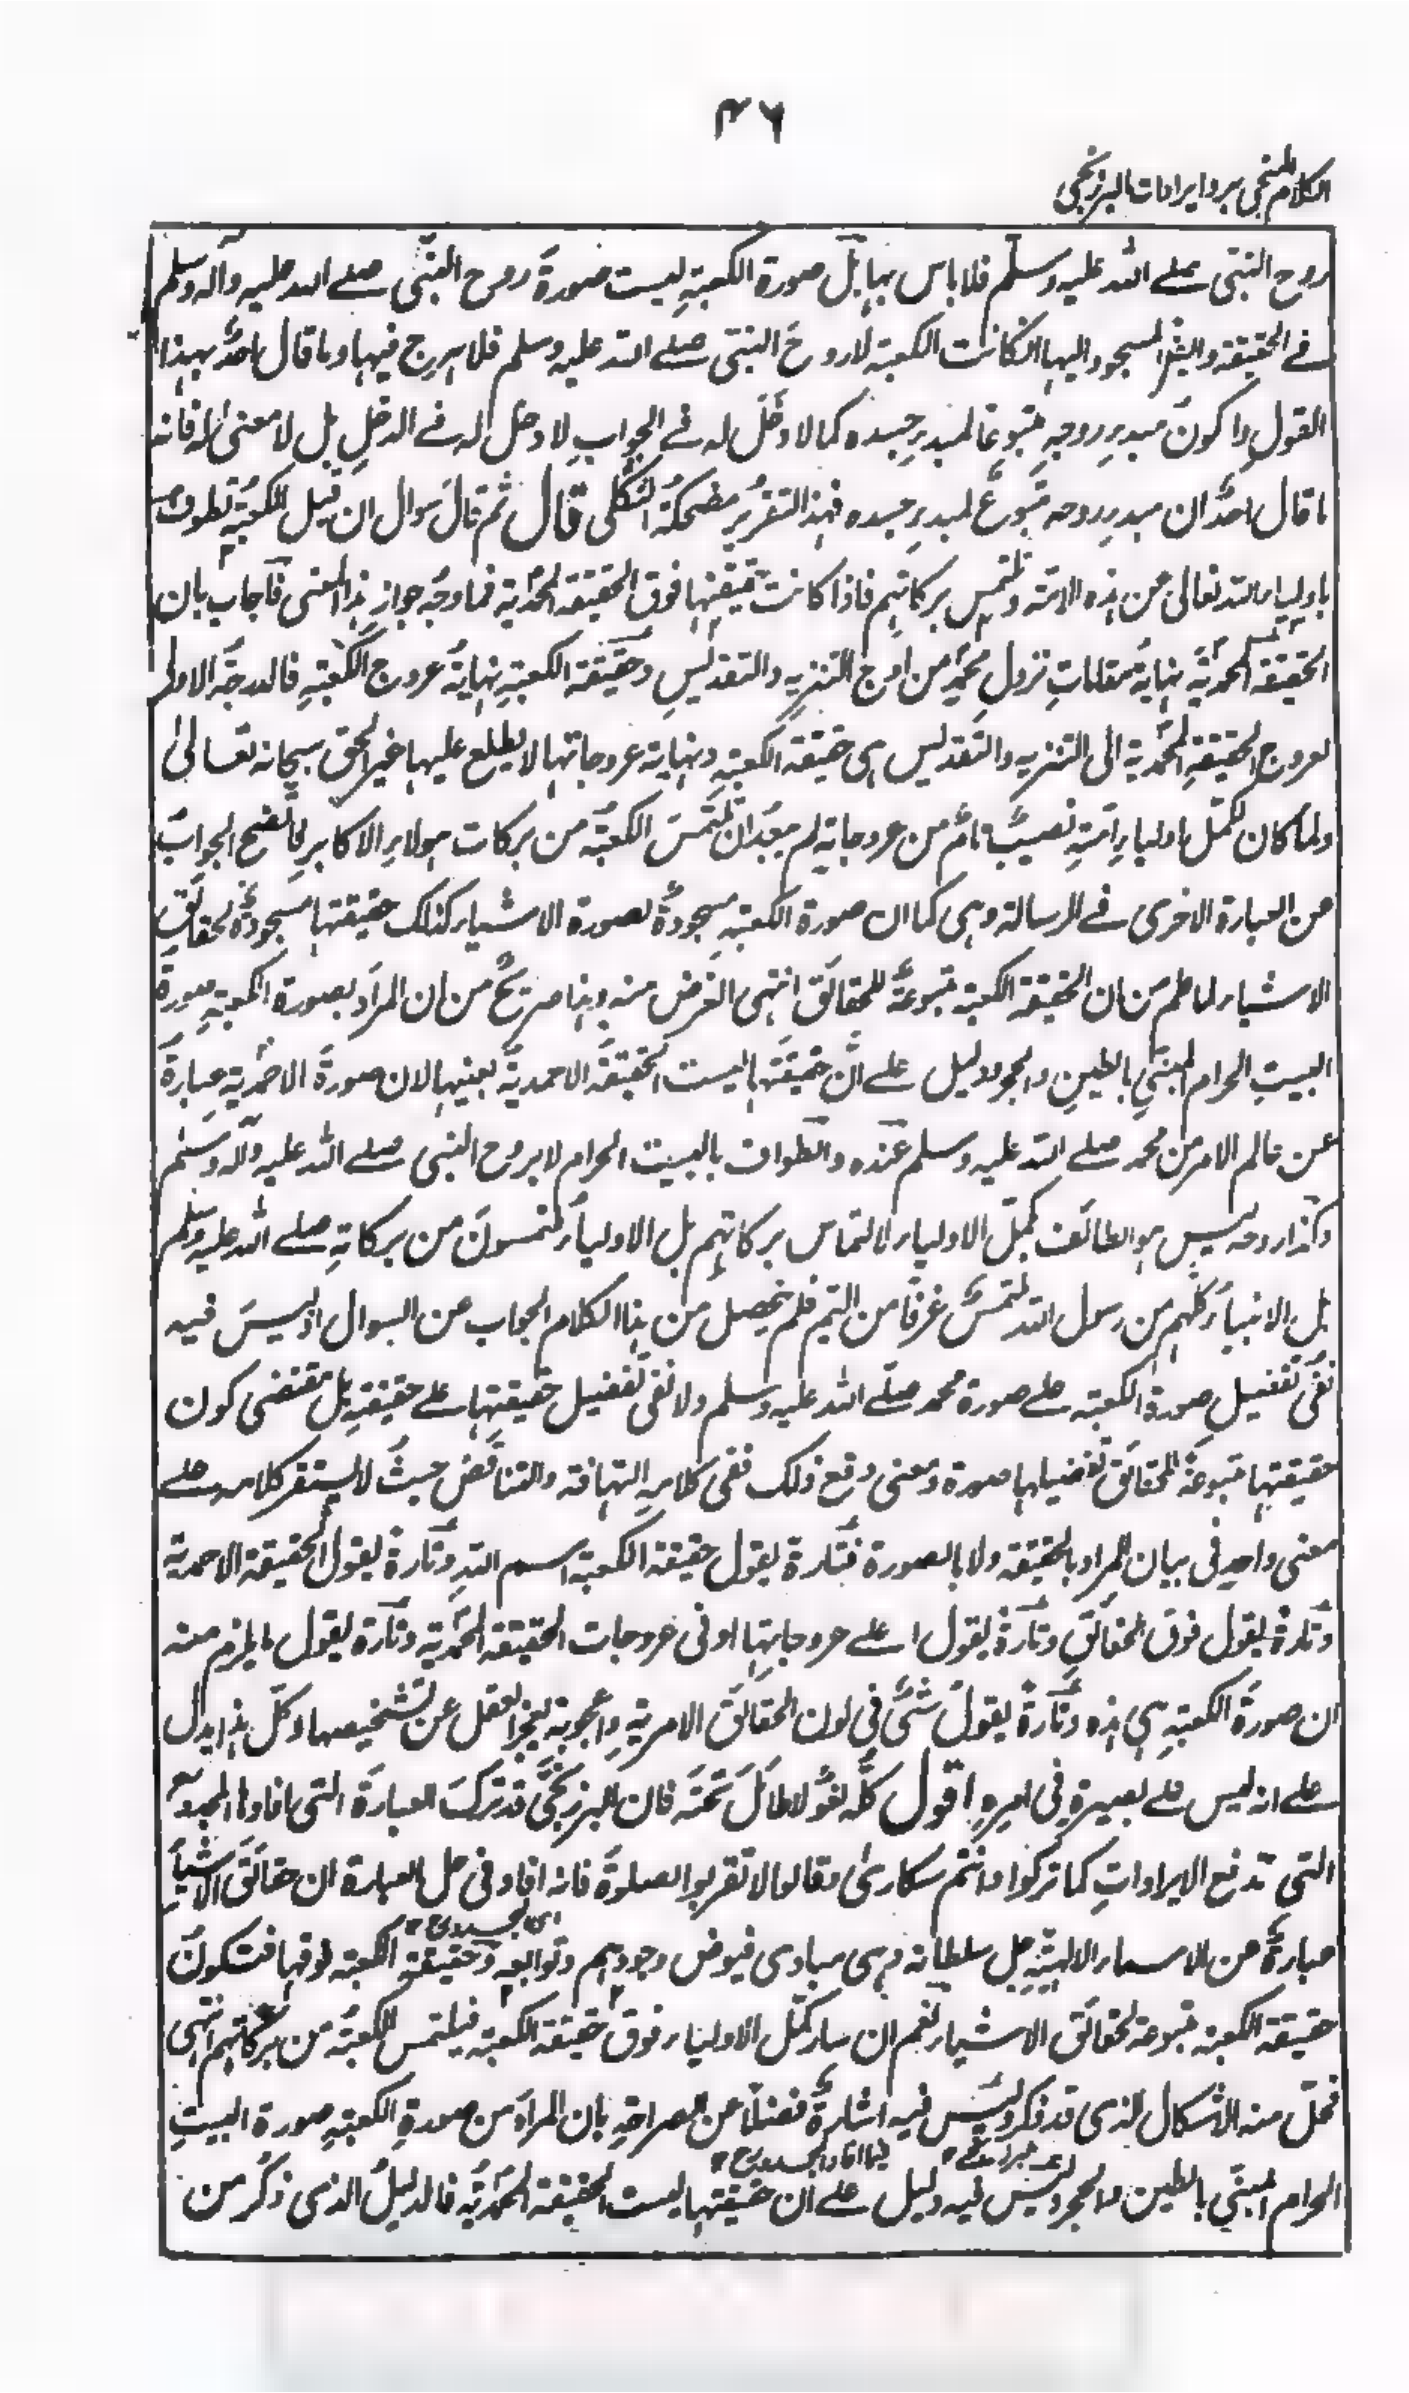 ۴۶
الكلام المنجي برد ايرادات البرزنجي
روح النبي صلے الله عليه وسلم فلا باس بها بل صورة الكعبة ليست صورة روح النبي صلے الله عليه وآله وسلم
فے الحقيقة والبشر المسجود اليها انكانت الكعبة لا روح النبي صلے الله عليه وسلم فلا هرج فيها وما قال احد بهذا
القول واكون مبدء روحه متبوعا لمبدء جسده كما لا دخل له فے الجواب لا دخل له فے الدخل بل لا معنى له فانه
ما قال احد ان مبدء روحه متبوع لمبدء جسده فهذا التقرير مضحكة الثكلى قال ثم قال سوال ان قيل الكعبة تطوف
باولياء الله تعالى من هذه الامة وتلتمس بركاتهم فاذا كانت حقيقتها فوق الحقيقة المحمدية فما وجه جواز هذا المعنى فاجاب بان
الحقيقة المحمدية نهاية مقامات نزول محمد من اوج التنزيه والتقديس وحقيقة الكعبة نهاية عروج الكعبة فالدرجة الاولى
لعروج الحقيقة المحمدية الى التنزيه والتقديس هى حقيقة الكعبة ونهاية عروجاتها لا يطلع عليها غير الحق سبحانه تعالىٰ
ولما كان لكمل اولياء امته نصيب تام من عروجاته لم يبعد ان تلتمس الكعبة من بركات هولاء الاكابر فاتضح الجواب
عن العبارة الاخرى فے الرسالة وهى كما ان صورة الكعبة مسجودة لصورة الاشياء كذلك حقيقتها مسجودة لحقائق
الاشياء لما علم من ان الحقيقة الكعبة متبوعة للحقائق انتهى الغرض منه وهنا صريح من ان المراد بصورة الكعبة صورة
البيت الحرام المبنى بالطين والحجر ودليل علے ان حقيقتها ليست الحقيقة الاحمدية بعينها لان صورة الاحمدية عبارة
عن عالم الامر من محمد صلے الله عليه وسلم عنده والطواف بالبيت الحرام لا بروح النبى صلے الله عليه وآله وسلم
وكذا روحه ليس هو الطائف بكمل الاولياء لالتماس بركاتهم بل الاولياء يلتمسون من بركاته صلے الله عليه وسلم
بل الانبياء كلهم من رسول الله ملتمس غرفا من اليم فلم يحصل من هنا الكلام الجواب عن السوال اذ ليس فيه
نفى تفضيل صورة الكعبة علے صورة محمد صلے الله عليه وسلم ولا نفى تفضيل حقيقتها علے حقيقته بل مقتضى كون
حقيقتها متبوعة للحقائق تفضيلها صورة ومعنى ومع ذلك ففى كلامه التهافة والتناقض حيث لا يستقر كلامه علے
معنى واحد فى بيان المراد بالحقيقة ولا بالصورة فتارة يقول حقيقة الكعبة اسم الله وتارة يقول الحقيقة الاحمدية
وتارة يقول فوق الحقائق وتارة يقول اعلے عروجاتها او فى عروجات الحقيقة المحمدية وتارة يقول ما يلزم منه
ان صورة الكعبة هى هذه وتارة يقول شئ فى لون الحقائق الامرية واعجوبة يعجز العقل عن تشخيصها وكل هذا يدل
علے انه ليس علے بصيرة فى امره اقول كله لغو لا طائل تحته فان البرزنجى قد ترك العبارة التى افادها المجدد
التى تدفع الايرادات كما تركوا وانتم سكارىٰ وقالوا لا تقربوا الصلوة فانه افاد فى حل العبارة ان حقائق الاشياء
اى المجدد رح ۱۲
عبارة عن الاسماء الالهية جل سلطانه وهى مبادى فيوض وجودهم وتوابعه وحقيقة الكعبة فوقها فتكون
حقيقة الكعبة متبوعة لحقائق الاشياء نعم ان سار كمل الاولياء فوق حقيقة الكعبة فيلتمس الكعبة من بركاتهم انتهى
فحل منه الاشكال الذى قد ذكر وليس فيه اشارة فضلا عن الصراحة بان المراد من صورة الكعبة صورة البيت
فيما افاد المجدد رح ۱۲
الحرام المبنى بالطين والحجر وليس فيه دليل علے ان حقيقتها ليست الحقيقة المحمدية فالدليل الذى ذكر من